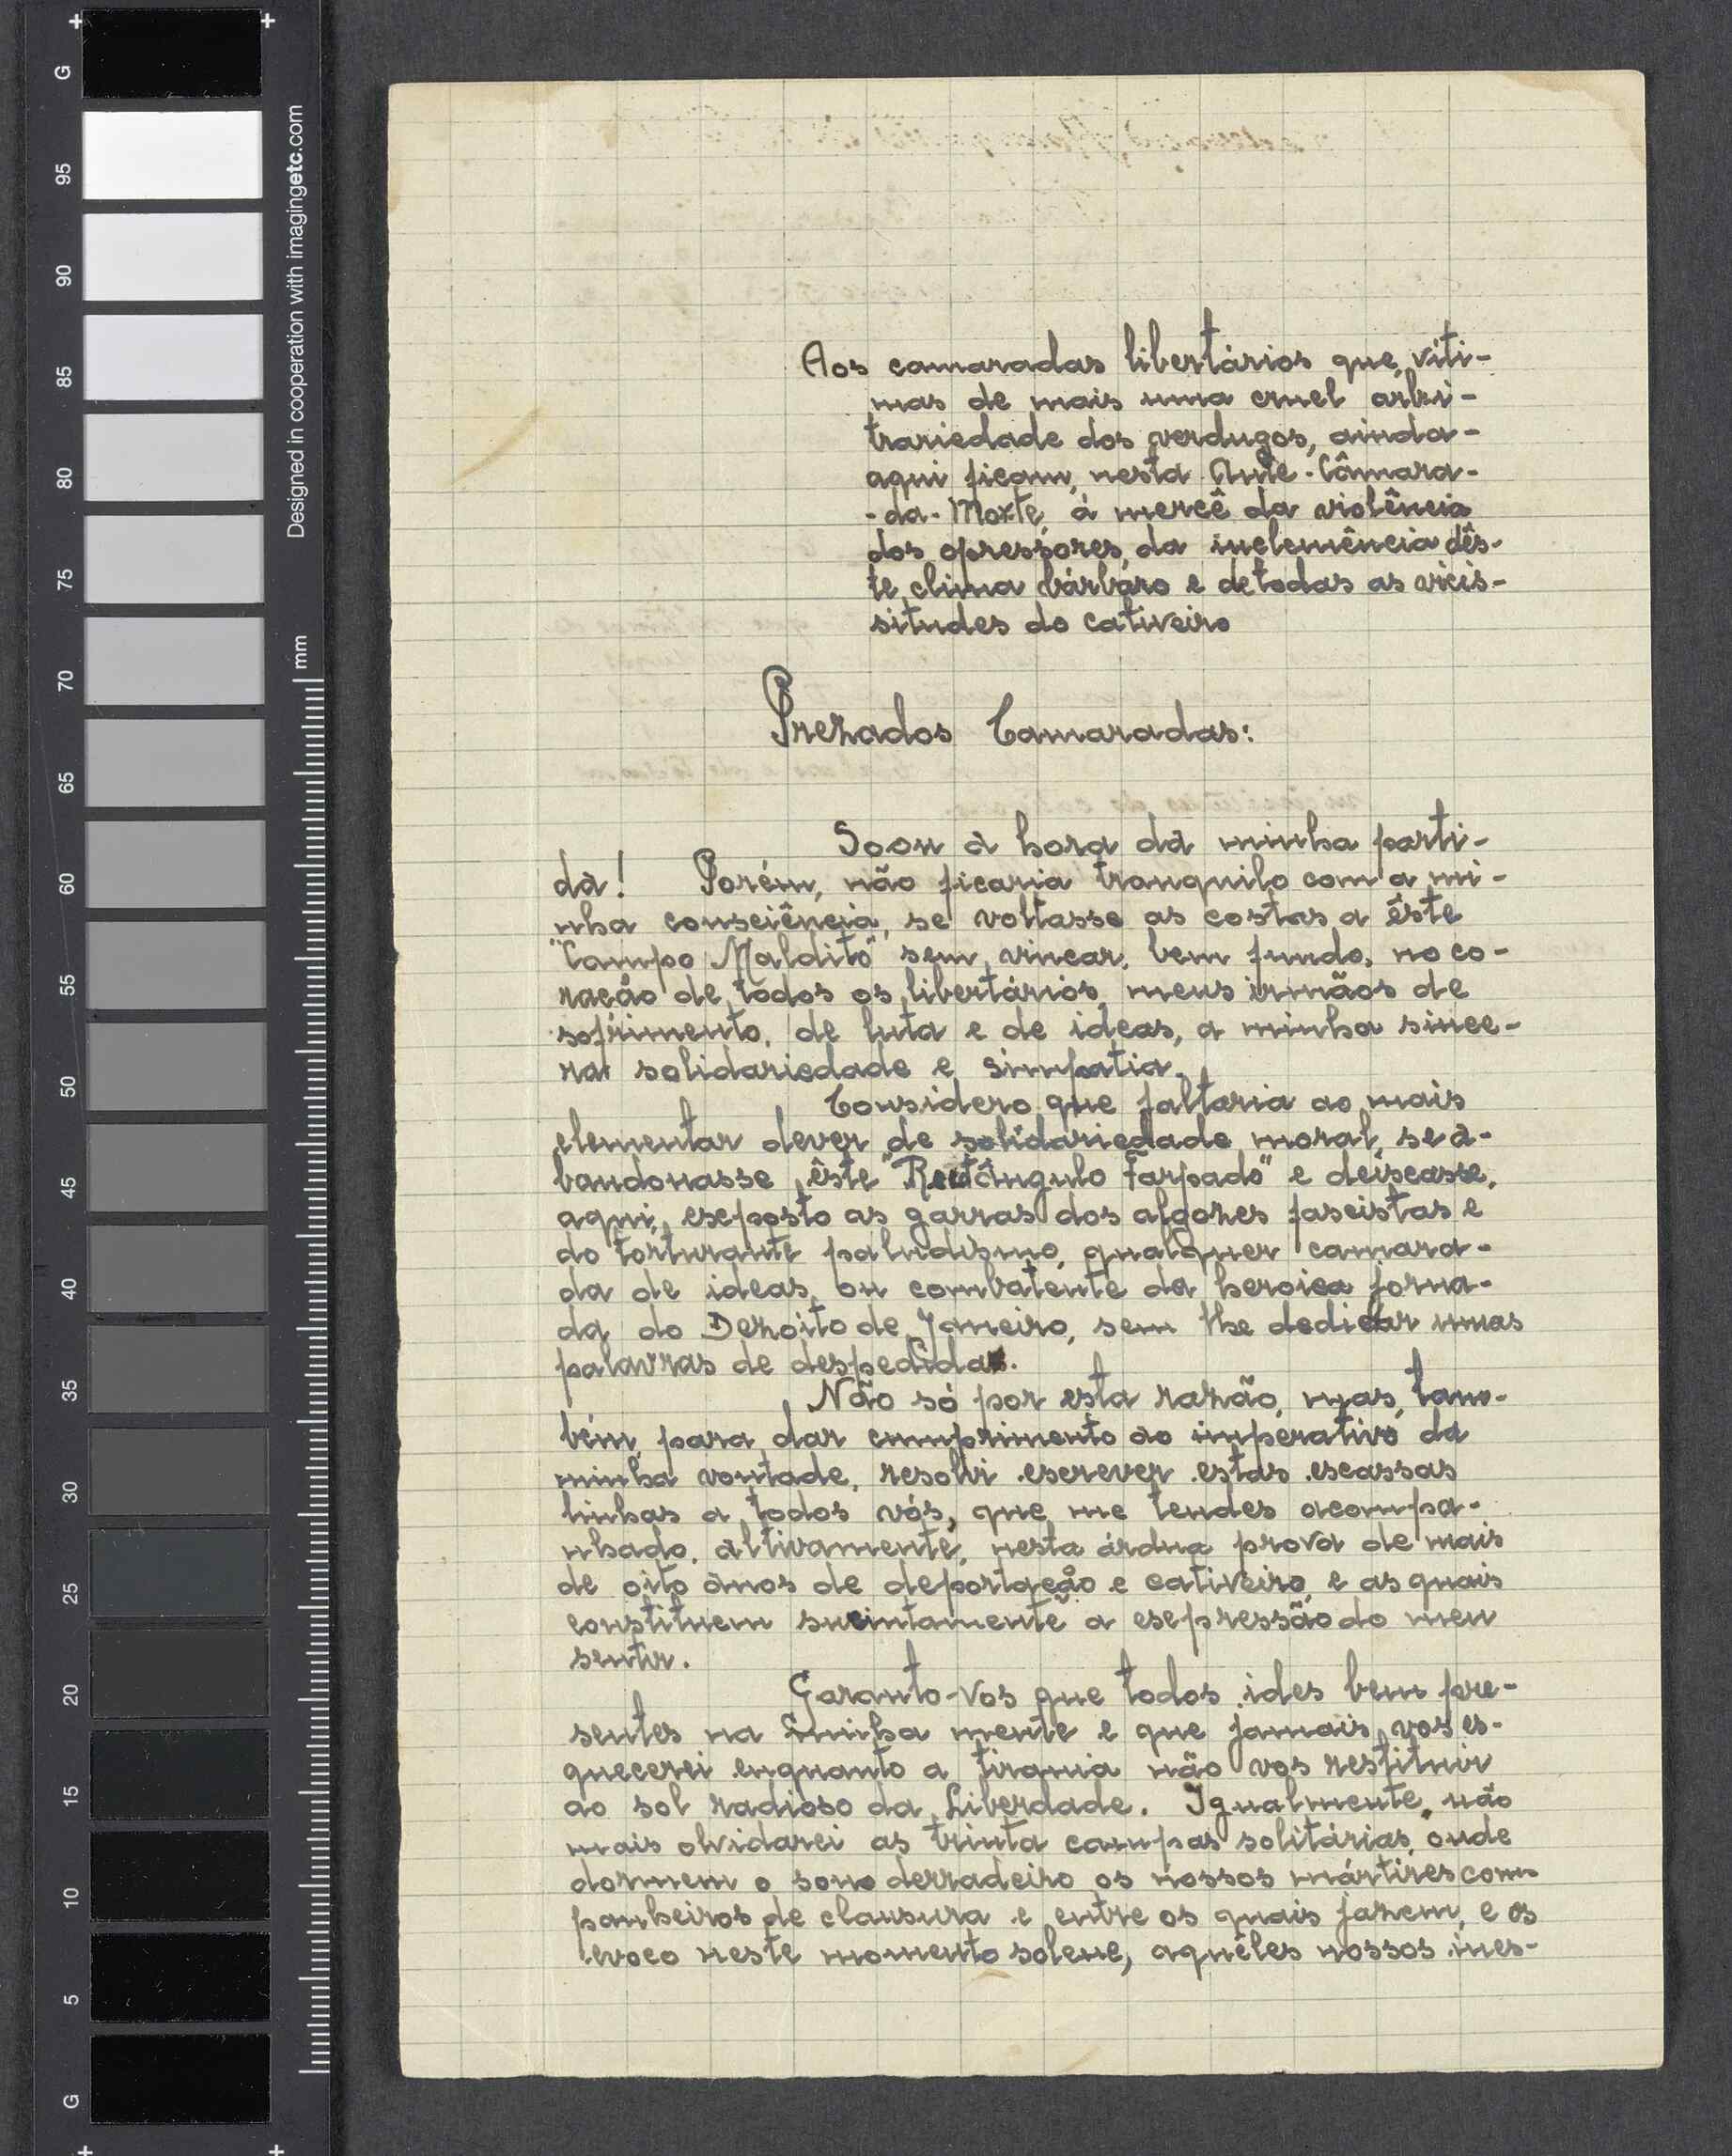 Aos camaradas libertários que, víti-
mas de mais uma cruel arbi-
trariedade dos verdugos, ainda-
aqui ficam, nesta Ante-Câmara-
-da-Morte, à mercê da violência
dos opressores, da inclemência dês-
te clima bárbaro e de todas as vicis-
situdes do cativeiro
Prezados Camaradas:
Soou à hora dà minha parti-
dà! Porém, não ficaria tranquilo com a mi-
nha consciência, se voltasse as costas a êste
"Campo Maldito" sem vincar, bem fundo, no co-
ração de todos os libertários, meus irmãos de
sofrimento, de luta e de ideas, a minha since-
ra solidariedade e simpatia.
Considero que faltaria ao mais
elementar dever de solidariedade moral, se à-
bandonasse êste "Rectângulo Farpado" e deixasse,
aqui, exposto as garras dos algozes fascistas e
do torturante paludismo, qualquer camara-
da de ideas, ou combatente da heroica jorna-
da do Dezoito de Janeiro, sem lhe dedicar umas
palavras de despedida.
Não só por esta razão, mas, tam-
bém, para dar cumprimento ao imperativo da
minha vontade, resolvi escrever estas escassas
linhas a todos vós, que me tendes acompa-
nhado, altivamente, nesta árdua prova de mais
de oito ànos de deportação e cativeiro, e as quais
constituem sucintamente a expressão do meu
sentir.
Garanto-vos que todos ides bem pre-
sentes na minha mente e que jamais vos es-
quecerei enquanto a tirania não vos restituir
ao sol radioso da Liberdade. Igualmente, não
mais olvidarei as trinta campas solitárias, onde
dormem o sono derradeiro os nossos mártires com
panheiros de clausura e entre os quais jazem, e os
evoco neste momento solene, aquêles nossos ines-
G
95
90
85
80
75
70
65
60
55
50
45
40
35
30
25
20
15
10
5
G
Designed in cooperation with imagingetc.com
mm